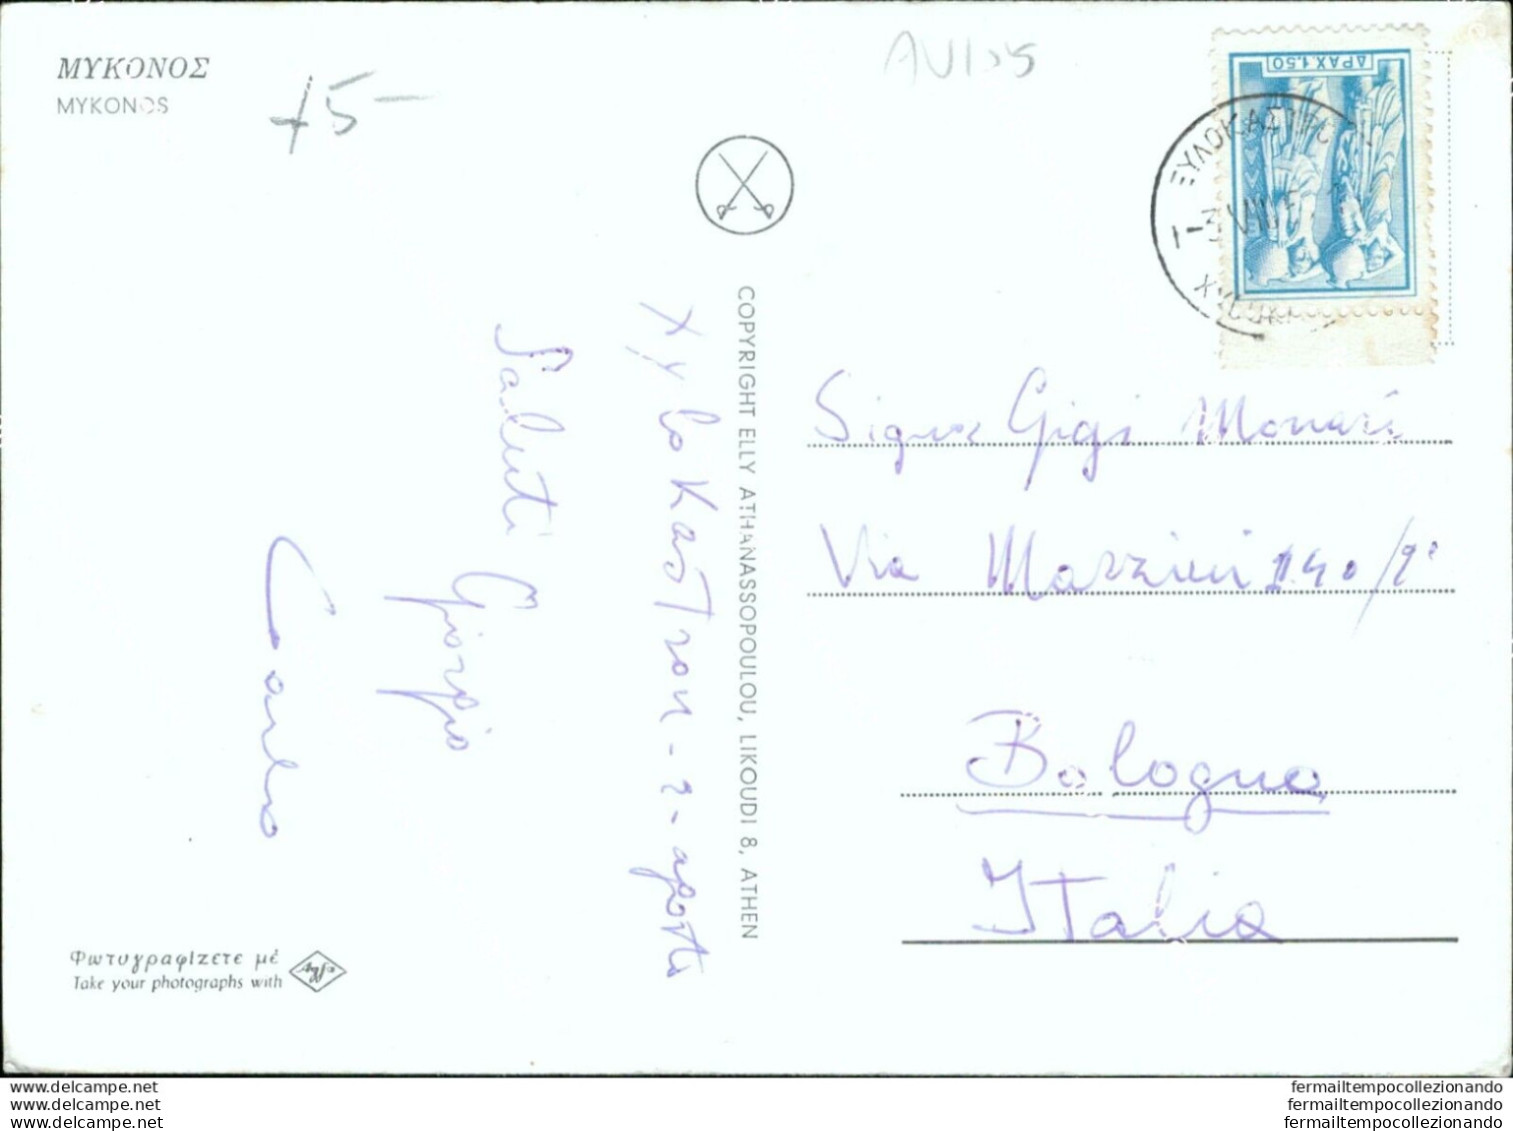 ΜΥΚΟΝΟΣ
MYKONOS
+5-
ΔΡΑΧ 1.50
ΞΥΛΟΚΑΣΤΡΟ
COPYRIGHT ELLY ATHANASSOPOULOU, LIKOUDI 8, ATHEN
XyloKastron - 2 - agosto
Saluti
Giorgio
Carlo
Signor Gigi Monari
Via Mazzini 140/2°
Bologna
Italia
Φωτογραφίζετε μέ
Take your photographs with
Agfa
www.delcampe.net
www.delcampe.net
www.delcampe.net
fermailtempocollezionando
fermailtempocollezionando
fermailtempocollezionando